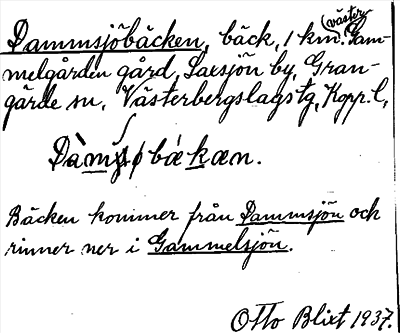 Dammsjöbäcken, bäck, 1 km. väster Gam-
melgården gård, Saxsjön by, Gran-
gärde sn, Västerbergslags tg, Kopp. l,
Bäcken kommer från Dammsjön och
rinner ner i Gammelsjön.
Otto Blixt 1937.